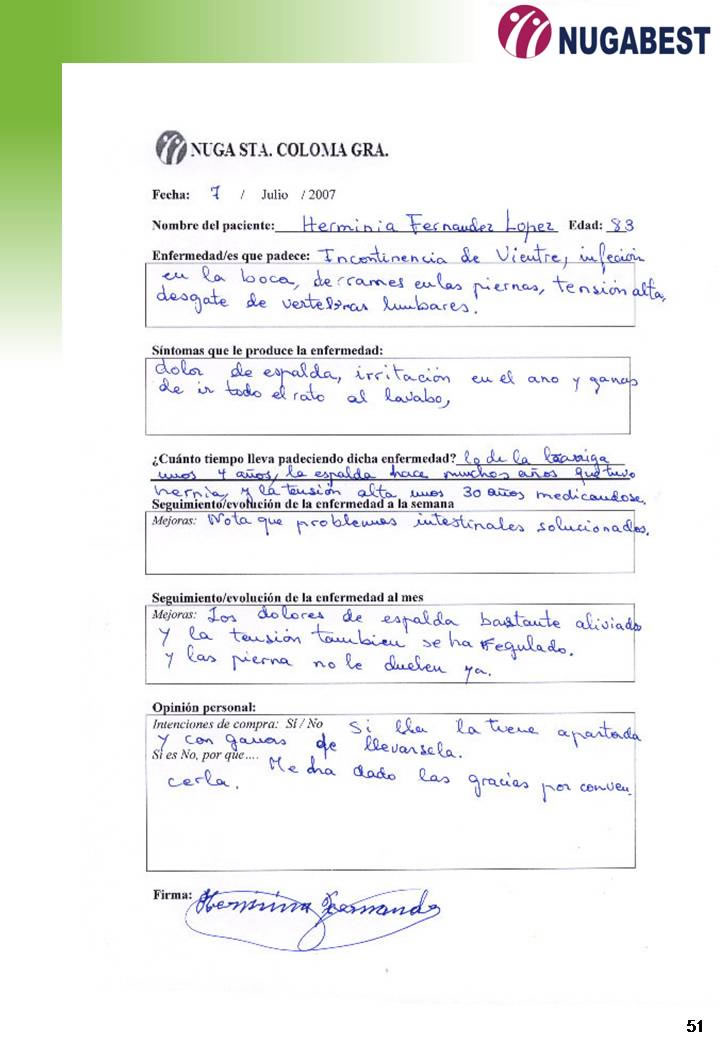 NUGABEST
NUGA STA. COLOMA GRA.
Fecha: 7 / Julio / 2007
Nombre del paciente: Herminia Fernandez Lopez Edad: 83
Enfermedad/es que padece: Incontinencia de Vientre, infecion
en la boca, derrames en las piernas, tensión alta,
desgate de vertebras lumbares.
Síntomas que le produce la enfermedad:
dolor de espalda, irritación en el ano y ganas
de ir todo el rato al lavabo,
¿Cuánto tiempo lleva padeciendo dicha enfermedad? lo de la barriga
unos 4 años, la espalda hace muchos años que tuvo
hernia, y la tensión alta unos 30 años medicandose.
Seguimiento/evolución de la enfermedad a la semana
Mejoras: Nota que problemas intestinales solucionados.
Seguimiento/evolución de la enfermedad al mes
Mejoras: Los dolores de espalda bastante aliviado
y la tensión tambien se ha regulado.
y las pierna no le duelen ya.
Opinión personal:
Intenciones de compra: Sí / No Si lla la tiene apartada
y con ganas de llevarsela.
Si es No, por que.... Me ha dado las gracias por conven
cerla.
Firma: Herminia Fernande
51